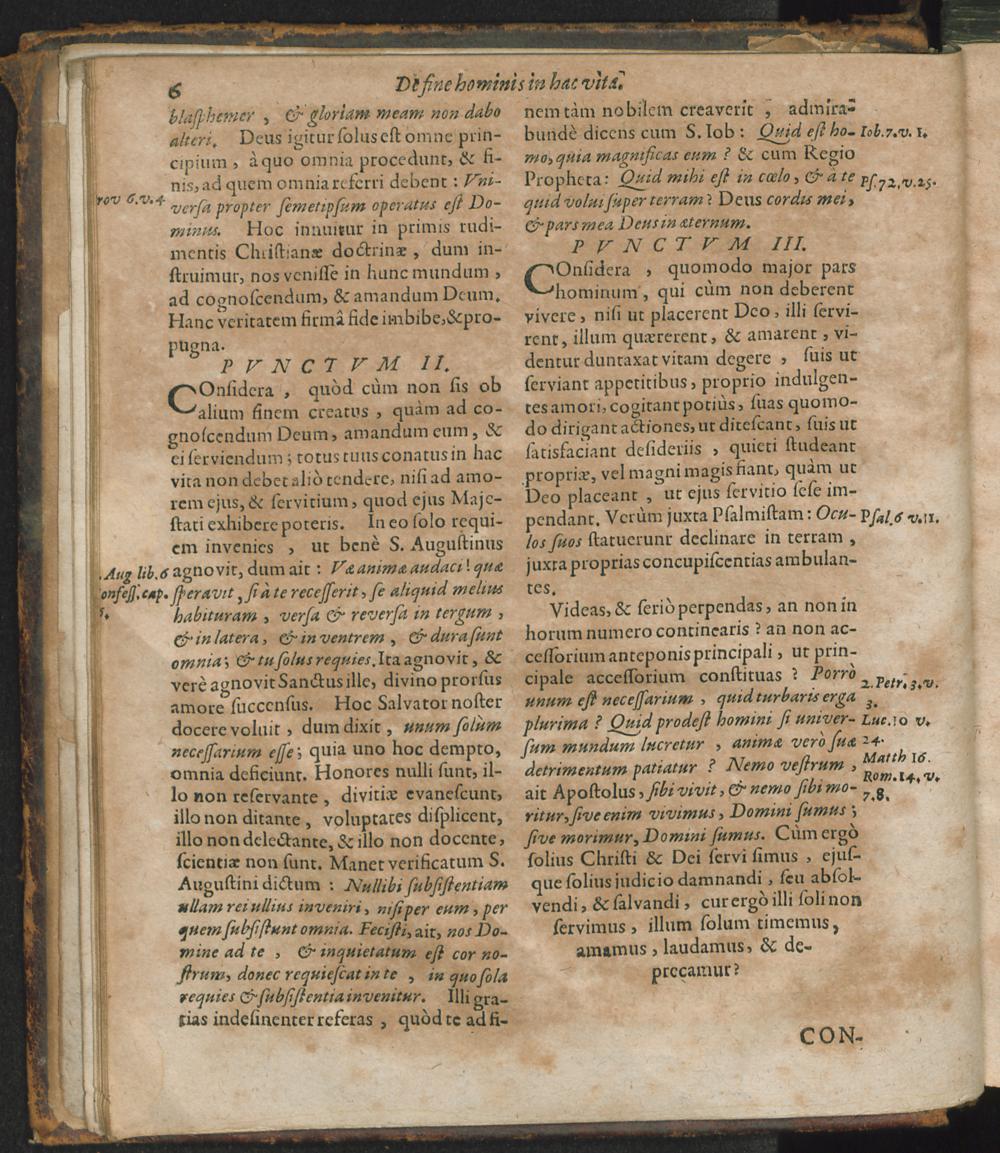 6
De fine hominis in hac vitâ.
blasphemer, & gloriam meam non dabo
alteri. Deus igitur solus est omne prin-
cipium, à quo omnia procedunt, & fi-
nis, ad quem omnia referri debent: Vni-
rov 6.v.4
versa propter semetipsum operatus est Do-
minus. Hoc innuitur in primis rudi-
mentis Christianæ doctrinæ, dum in-
struimur, nos venisse in hunc mundum,
ad cognoscendum, & amandum Deum.
Hanc veritatem firmâ fide imbibe, & pro-
pugna.
PVNCTVM II.
COnsidera, quòd cùm non sis ob
alium finem creatus, quàm ad co-
gnoscendum Deum, amandum eum, &
ei serviendum; totus tuus conatus in hac
vita non debet aliò tendere, nisi ad amo-
rem ejus, & servitium, quod ejus Maje-
stati exhibere poteris. In eo solo requi-
em invenies, ut benè S. Augustinus
.Aug lib.6
agnovit, dum ait: Væ animæ audaci! quæ
onfess.cap.
speravit, si à te recesserit, se aliquid melius
habituram, versa & reversa in tergum,
& in latera, & in ventrem, & dura sunt
omnia; & tu solus requies. Ita agnovit, &
verè agnovit Sanctus ille, divino prorsus
amore succensus. Hoc Salvator noster
docere voluit, dum dixit, unum solùm
necessarium esse; quia uno hoc dempto,
omnia deficiunt. Honores nulli sunt, il-
lo non reservante, divitiæ evanescunt,
illo non ditante, voluptates displicent,
illo non delectante, & illo non docente,
scientiæ non sunt. Manet verificatum S.
Augustini dictum: Nullibi subsistentiam
ullam rei ullius inveniri, nisi per eum, per
quem subsistunt omnia. Fecisti, ait, nos Do-
mine ad te, & inquietatum est cor no-
strum, donec requiescat in te, in quo sola
requies & subsistentia invenitur. Illi gra-
tias indesinenter referas, quòd te ad fi-
nem tàm nobilem creaverit, admira-
bundè dicens cum S. Iob: Quid est ho-
Iob.7.v. 1.
mo, quia magnificas eum? & cum Regio
Propheta: Quid mihi est in cœlo, & à te
Ps.72,v.25.
quid volui super terram? Deus cordis mei,
& pars mea Deus in æternum.
PVNCTVM III.
COnsidera, quomodo major pars
hominum, qui cùm non deberent
vivere, nisi ut placerent Deo, illi servi-
rent, illum quærerent, & amarent, vi-
dentur duntaxat vitam degere, suis ut
serviant appetitibus, proprio indulgen-
tes amori, cogitant potiùs, suas quomo-
do dirigant actiones, ut ditescant, suis ut
satisfaciant desideriis, quieti studeant
propriæ, vel magni magis fiant, quàm ut
Deo placeant, ut ejus servitio sese im-
pendant. Verùm juxta Psalmistam: Ocu-
Psal.6 v.11.
los suos statuerunt declinare in terram,
juxta proprias concupiscentias ambulan-
tes.
Videas, & seriò perpendas, an non in
horum numero continearis? an non ac-
cessorium anteponis principali, ut prin-
cipale accessorium constituas? Porrò
2.Petr.3.v.
3.
unum est necessarium, quid turbaris erga
plurima? Quid prodest homini si univer-
Luc.10 v.
24.
sum mundum lucretur, animæ verò suæ
detrimentum patiatur? Nemo vestrum,
Matth 16.
Rom.14.v.
7.8.
ait Apostolus, sibi vivit, & nemo sibi mo-
ritur, sive enim vivimus, Domini sumus;
sive morimur, Domini sumus. Cùm ergò
solius Christi & Dei servi simus, ejus-
que solius judicio damnandi, seu absol-
vendi, & salvandi, cur ergò illi soli non
servimus, illum solum timemus,
amamus, laudamus, & de-
precamur?
CON-